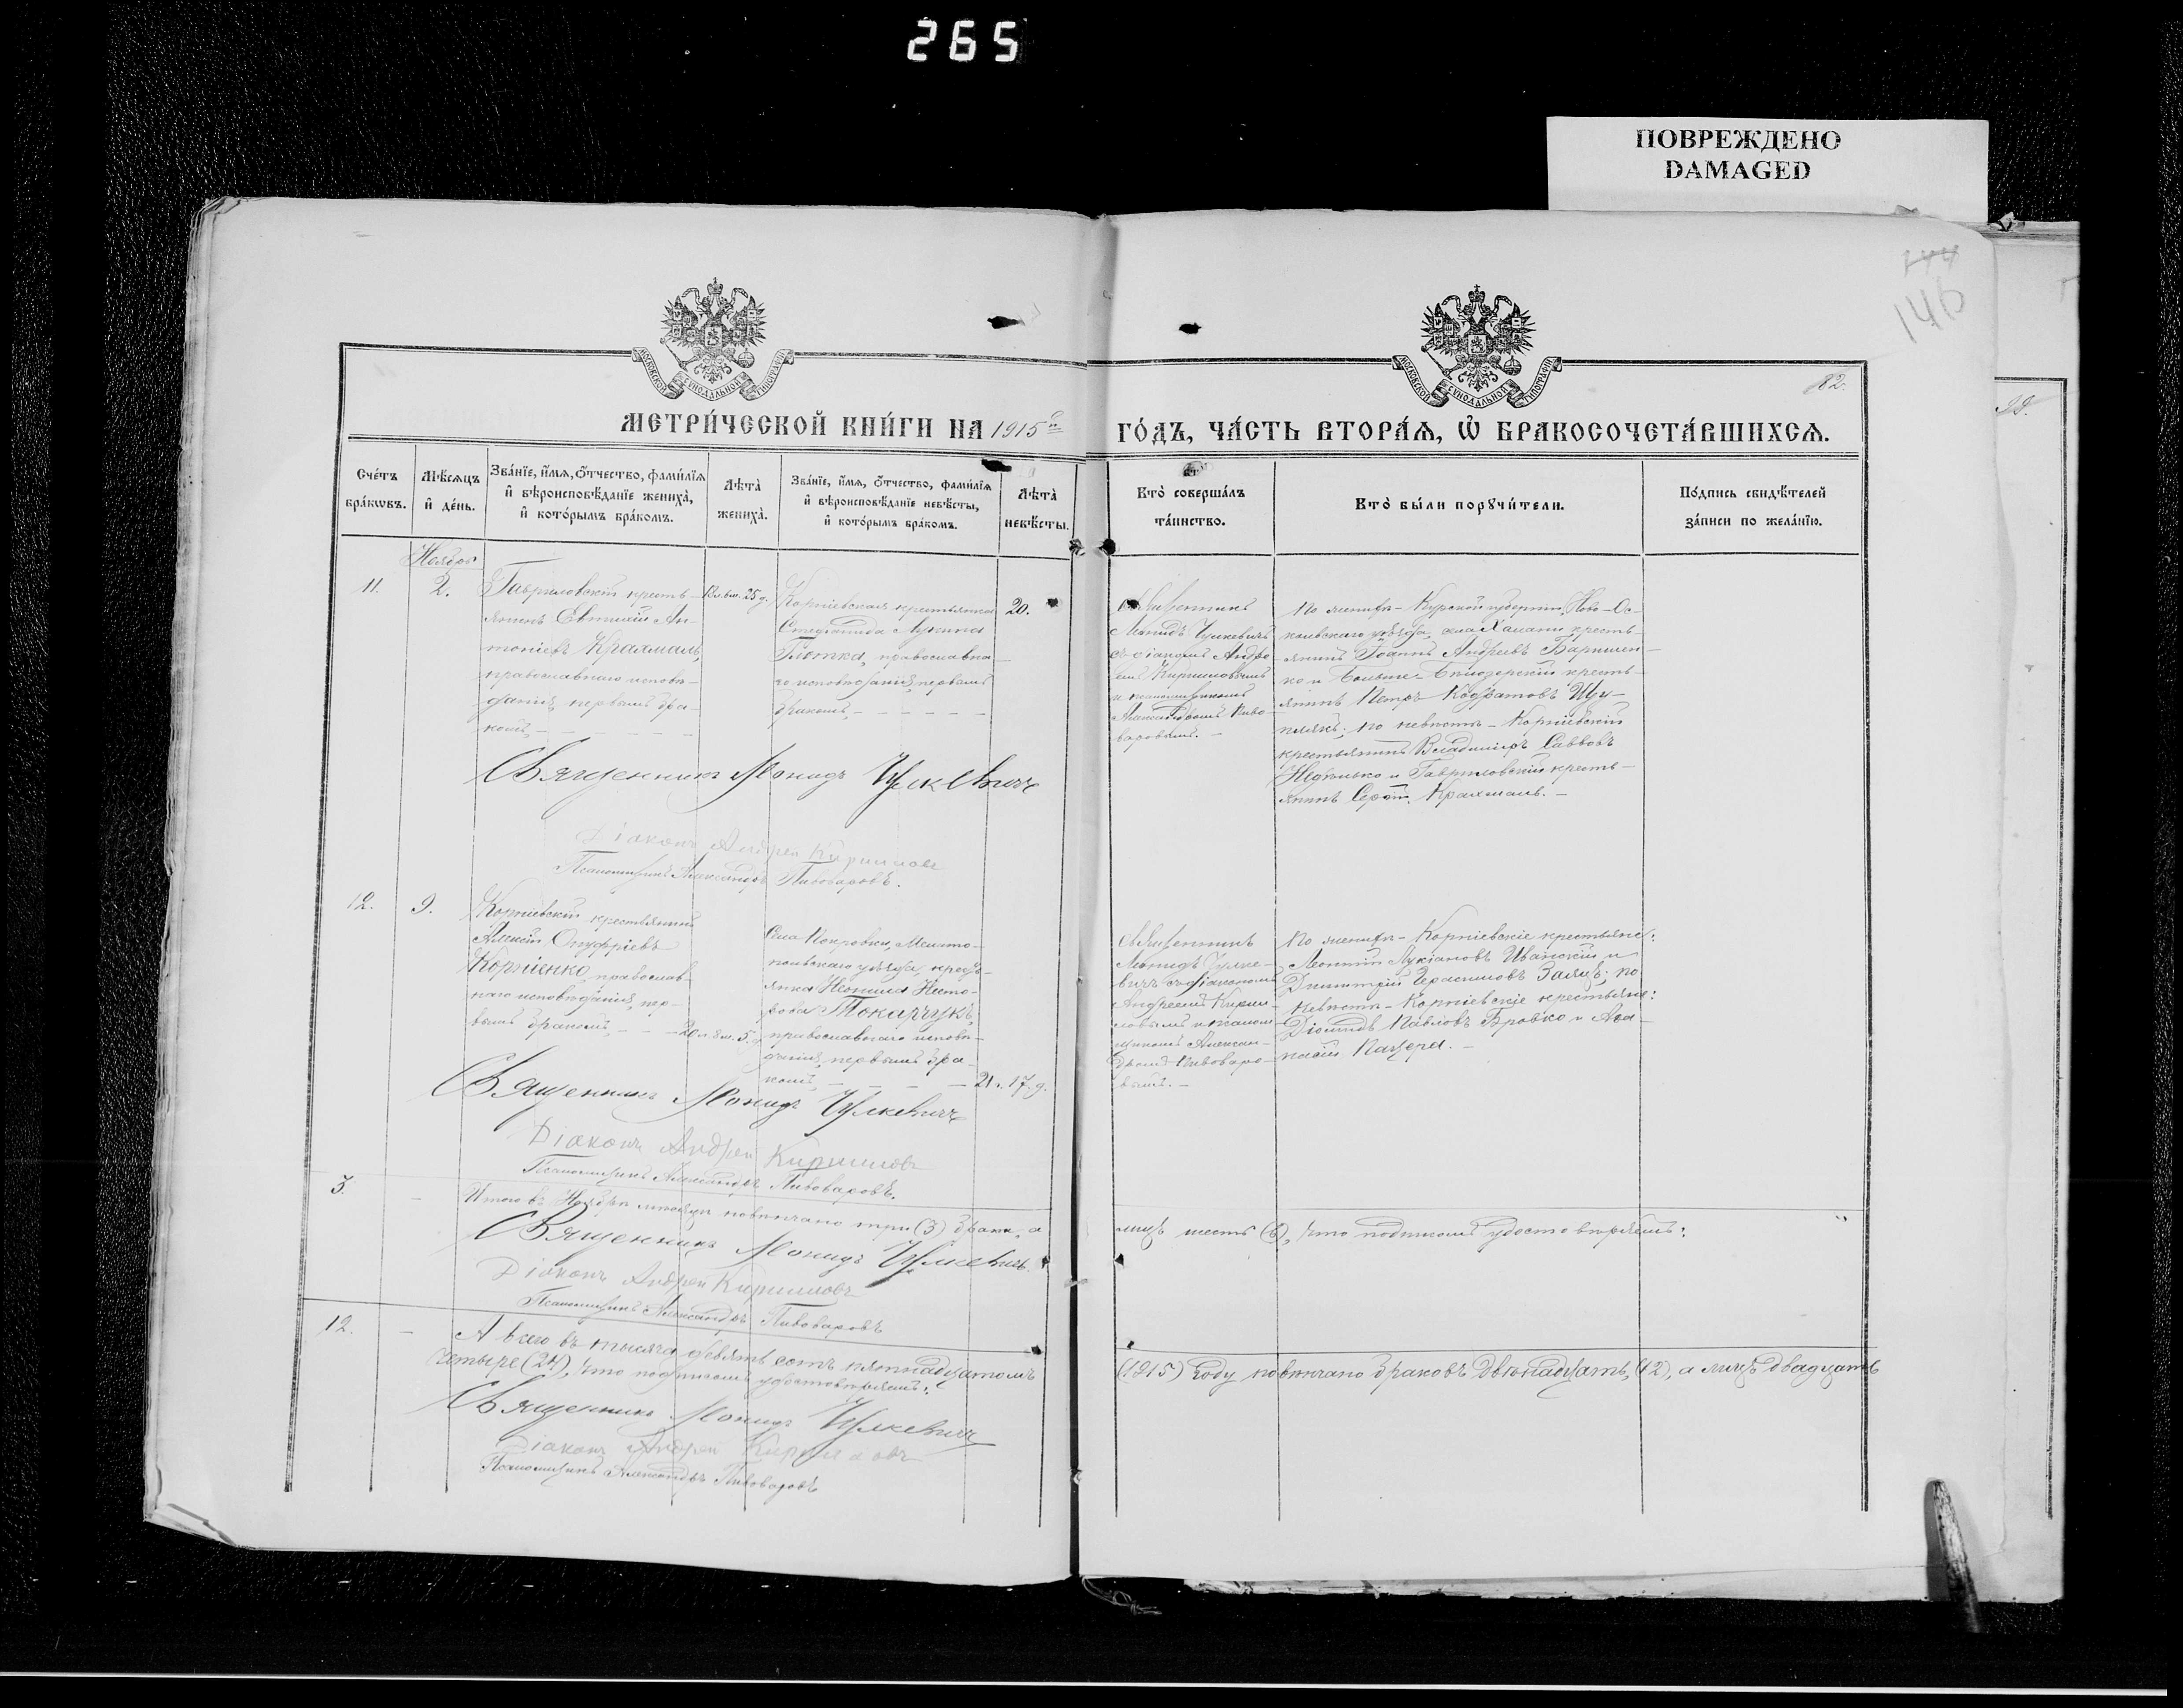 265
ПОВРЕЖДЕНО
DAMAGED
144
146
82.
МЕТРИ́ЧЕСКОЙ КНИ́ГИ НА 1915й
ГО́ДЪ, ЧА́СТЬ ВТОРА́Я, Ѡ҆ БРАКОСОЧЕТА́ВШИХСЯ.
Сче́тъ
бра́кѡвъ.
Мѣ́сяцъ
и҆ де́нь.
Зва́нїе, и҆́мя, ѻ҆́тчество, фами́лїя
и҆ вѣроисповѣ́данїе жениха̀,
и҆ кото́рымъ бра́комъ.
Лѣ́та
жениха̀.
Зва́нїе, и҆́мя, ѻ҆́тчество, фами́лїя
и҆ вѣроисповѣ́данїе невѣ́сты,
и҆ кото́рымъ бра́комъ.
Лѣ́та
невѣ́сты.
Кто̀ соверша́лъ
та́инство.
Кто̀ бы́ли порꙋчи́тели.
По́дпись свидѣ́телей
за́писи по жела́нїю.
Ноябрь
11.
2.
Гавриловскій кресть-
янинъ Евтихій Ан-
тоніевъ Крахмаль,
православнаго исповѣ-
данія, первымъ бра-
комъ,
25 д.
Корніевская крестьянка
Стефанида Лукина
православна-
го исповѣданія, первымъ
бракомъ,
20.
Священникъ
Леонидъ Цулкевичъ
съ діакономъ Андре-
емъ Кирилловымъ
и псаломщикомъ
Александромъ Пиво-
варовымъ.
По женихѣ - Курской губерніи, Ново-Ос-
кольскаго уѣзда, села Халани кресть-
янинъ Іоаннъ Андреевъ
ко и Больше-Бѣлозерскій кресть-
янинъ Петръ Кодратовъ Щу-
плякъ; по невѣстѣ - Корніевскій
крестьянинъ Владиміръ Савовъ
Недѣлько и Гавриловскій кресть-
янинъ Крахмаль.
Священникъ Леонидъ Цулкевичъ
Діаконъ Андрей Кирилловъ
Псаломщикъ Александръ Пивоваровъ.
12.
9.
Корніевскій крестьянинъ
Алексій Онуфріевъ
Корніенко, православ-
наго исповѣданія, пер-
вымъ бракомъ,
20 л. 8 м. 5 д.
Села Покровки, Мелито-
польскаго уѣзда, кресть-
янка Неонила
Токарчукъ,
православнаго исповѣ-
данія, первымъ бра-
комъ,
21 г. 17 д.
Священникъ
Леонидъ Цулке-
вичъ съ діакономъ
Андреемъ Кирил-
ловымъ и псалом-
щикомъ Алексан-
дромъ Пивоваро-
вымъ.
По женихѣ - Корніевскіе крестьяне:
Леонтій Лукіановъ Иванскій и
Димитрій Герасимовъ Заяцъ; по
невѣстѣ - Корніевскіе крестьяне:
Діомидъ Павловъ Бровко и Аѳа-
насій Пацера.
Священникъ Леонидъ Цулкевичъ
Діаконъ Андрей Кирилловъ
Псаломщикъ Александръ Пивоваровъ.
3.
Итого въ Ноябрѣ мѣсяцѣ повѣнчано три (3) брака, а
лицъ шесть (6), что подписомъ удостовѣряемъ:
Священникъ Леонидъ Цулкевичъ
Діаконъ Андрей Кирилловъ
Псаломщикъ Александръ Пивоваровъ
12.
А всего въ тысяча девятьсотъ пятнадцатомъ
(1915) году повѣнчано браковъ двѣнадцать (12), а лицъ двадцать
четыре (24), что подписомъ удостовѣряемъ:
Священникъ Леонидъ Цулкевичъ
Діаконъ Андрей Кирилловъ
Псаломщикъ Александръ Пивоваровъ